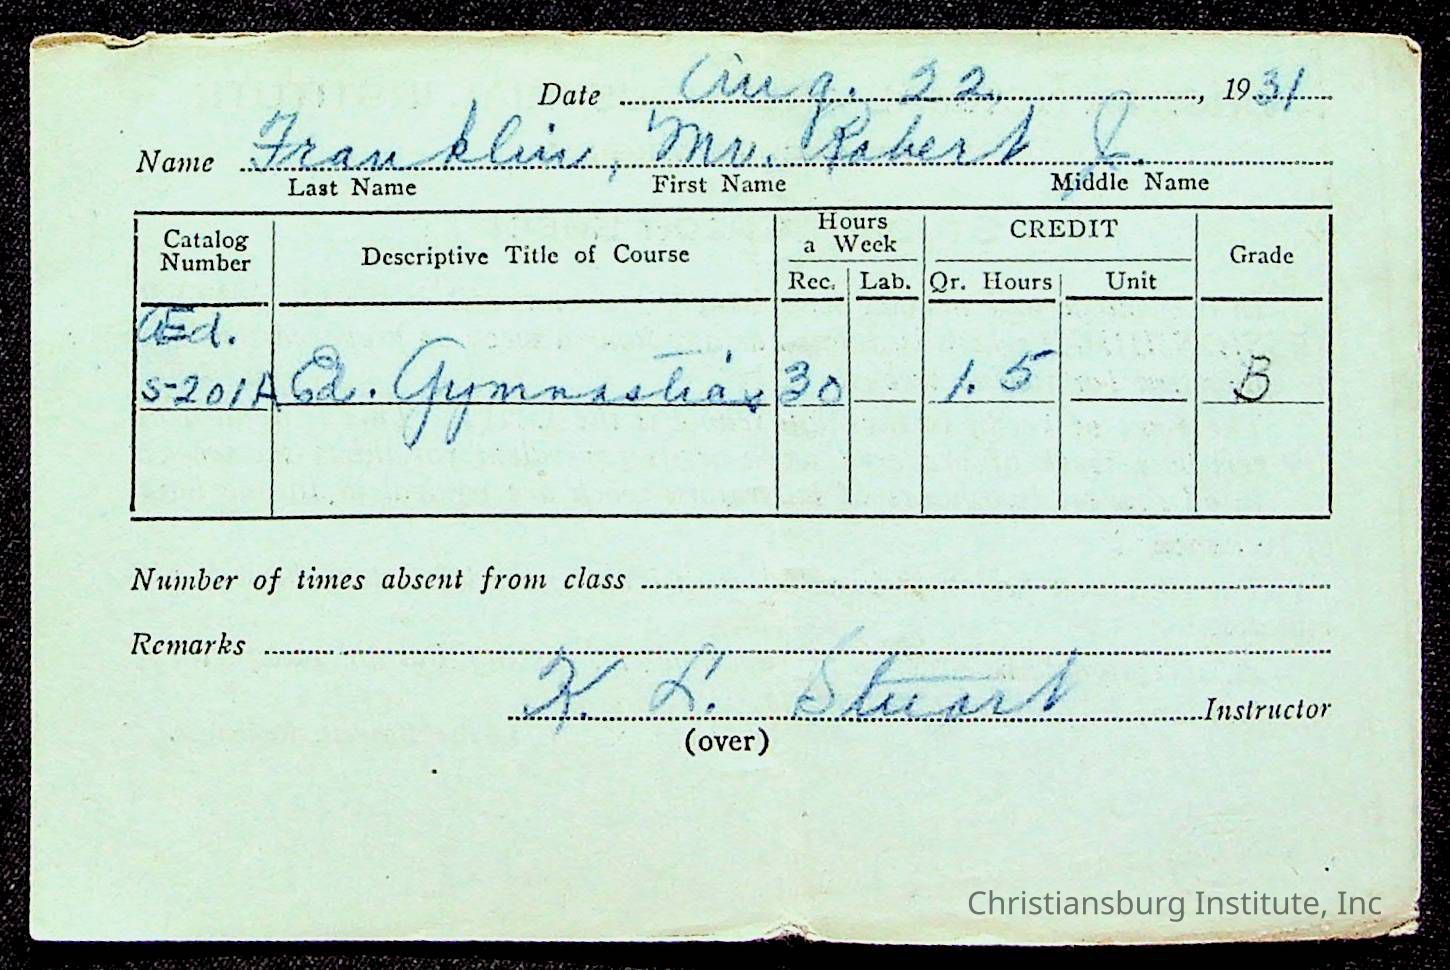 Date Aug. 22, 1931
Name Franklin, Mr. Robert J.
Last Name First Name Middle Name
Catalog Number Descriptive Title of Course Hours a Week Rec. Lab. CREDIT Qr. Hours Unit Grade
Ed.
S-201A Ed. Gymnastics 30 1.5 B
Number of times absent from class
Remarks
K. L. Stuart Instructor
(over)
Christiansburg Institute, Inc